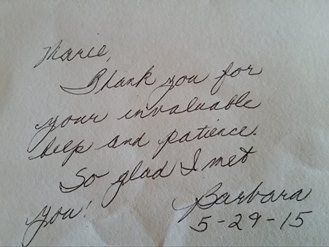 Marie,
Thank you for
your invaluable
help and patience.
So glad I met
you!
Barbara
5-29-15